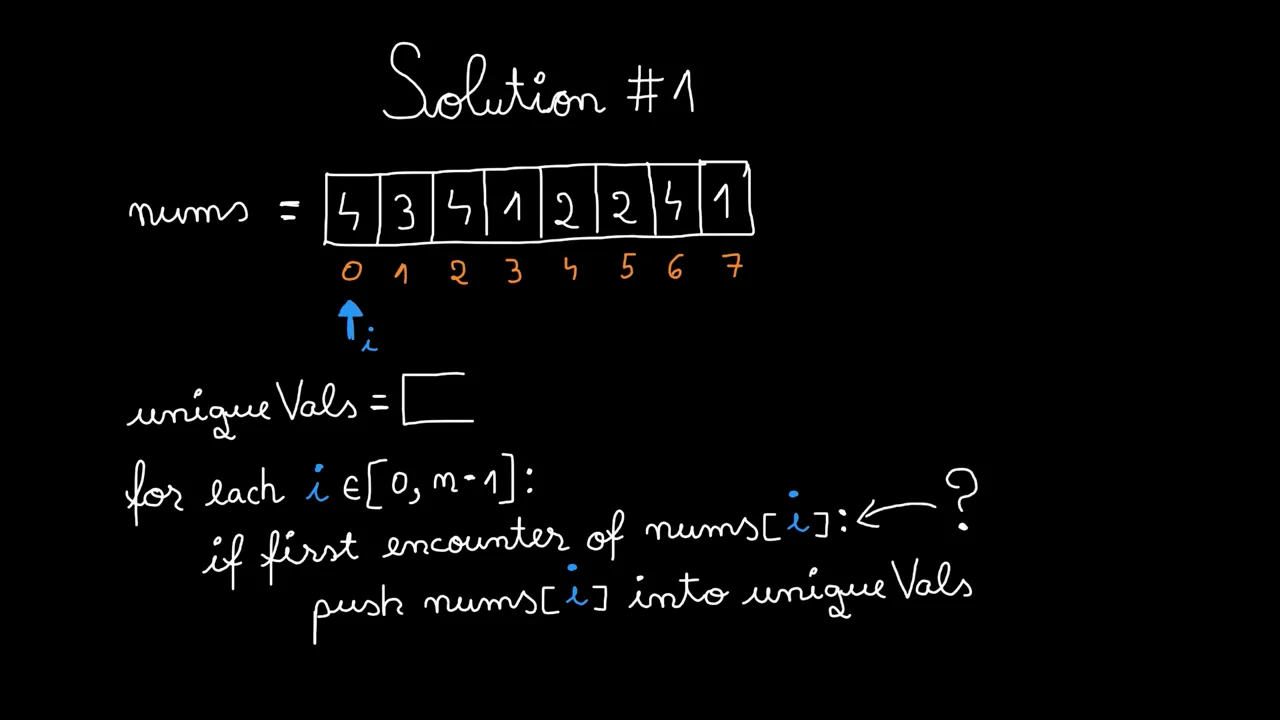 Solution #1
nums = 4 3 4 1 2 2 4 1
0 1 2 3 4 5 6 7
i
uniqueVals = [
for each i ∈ [0, n-1]:
if first encounter of nums[i]: ← ?
push nums[i] into uniqueVals